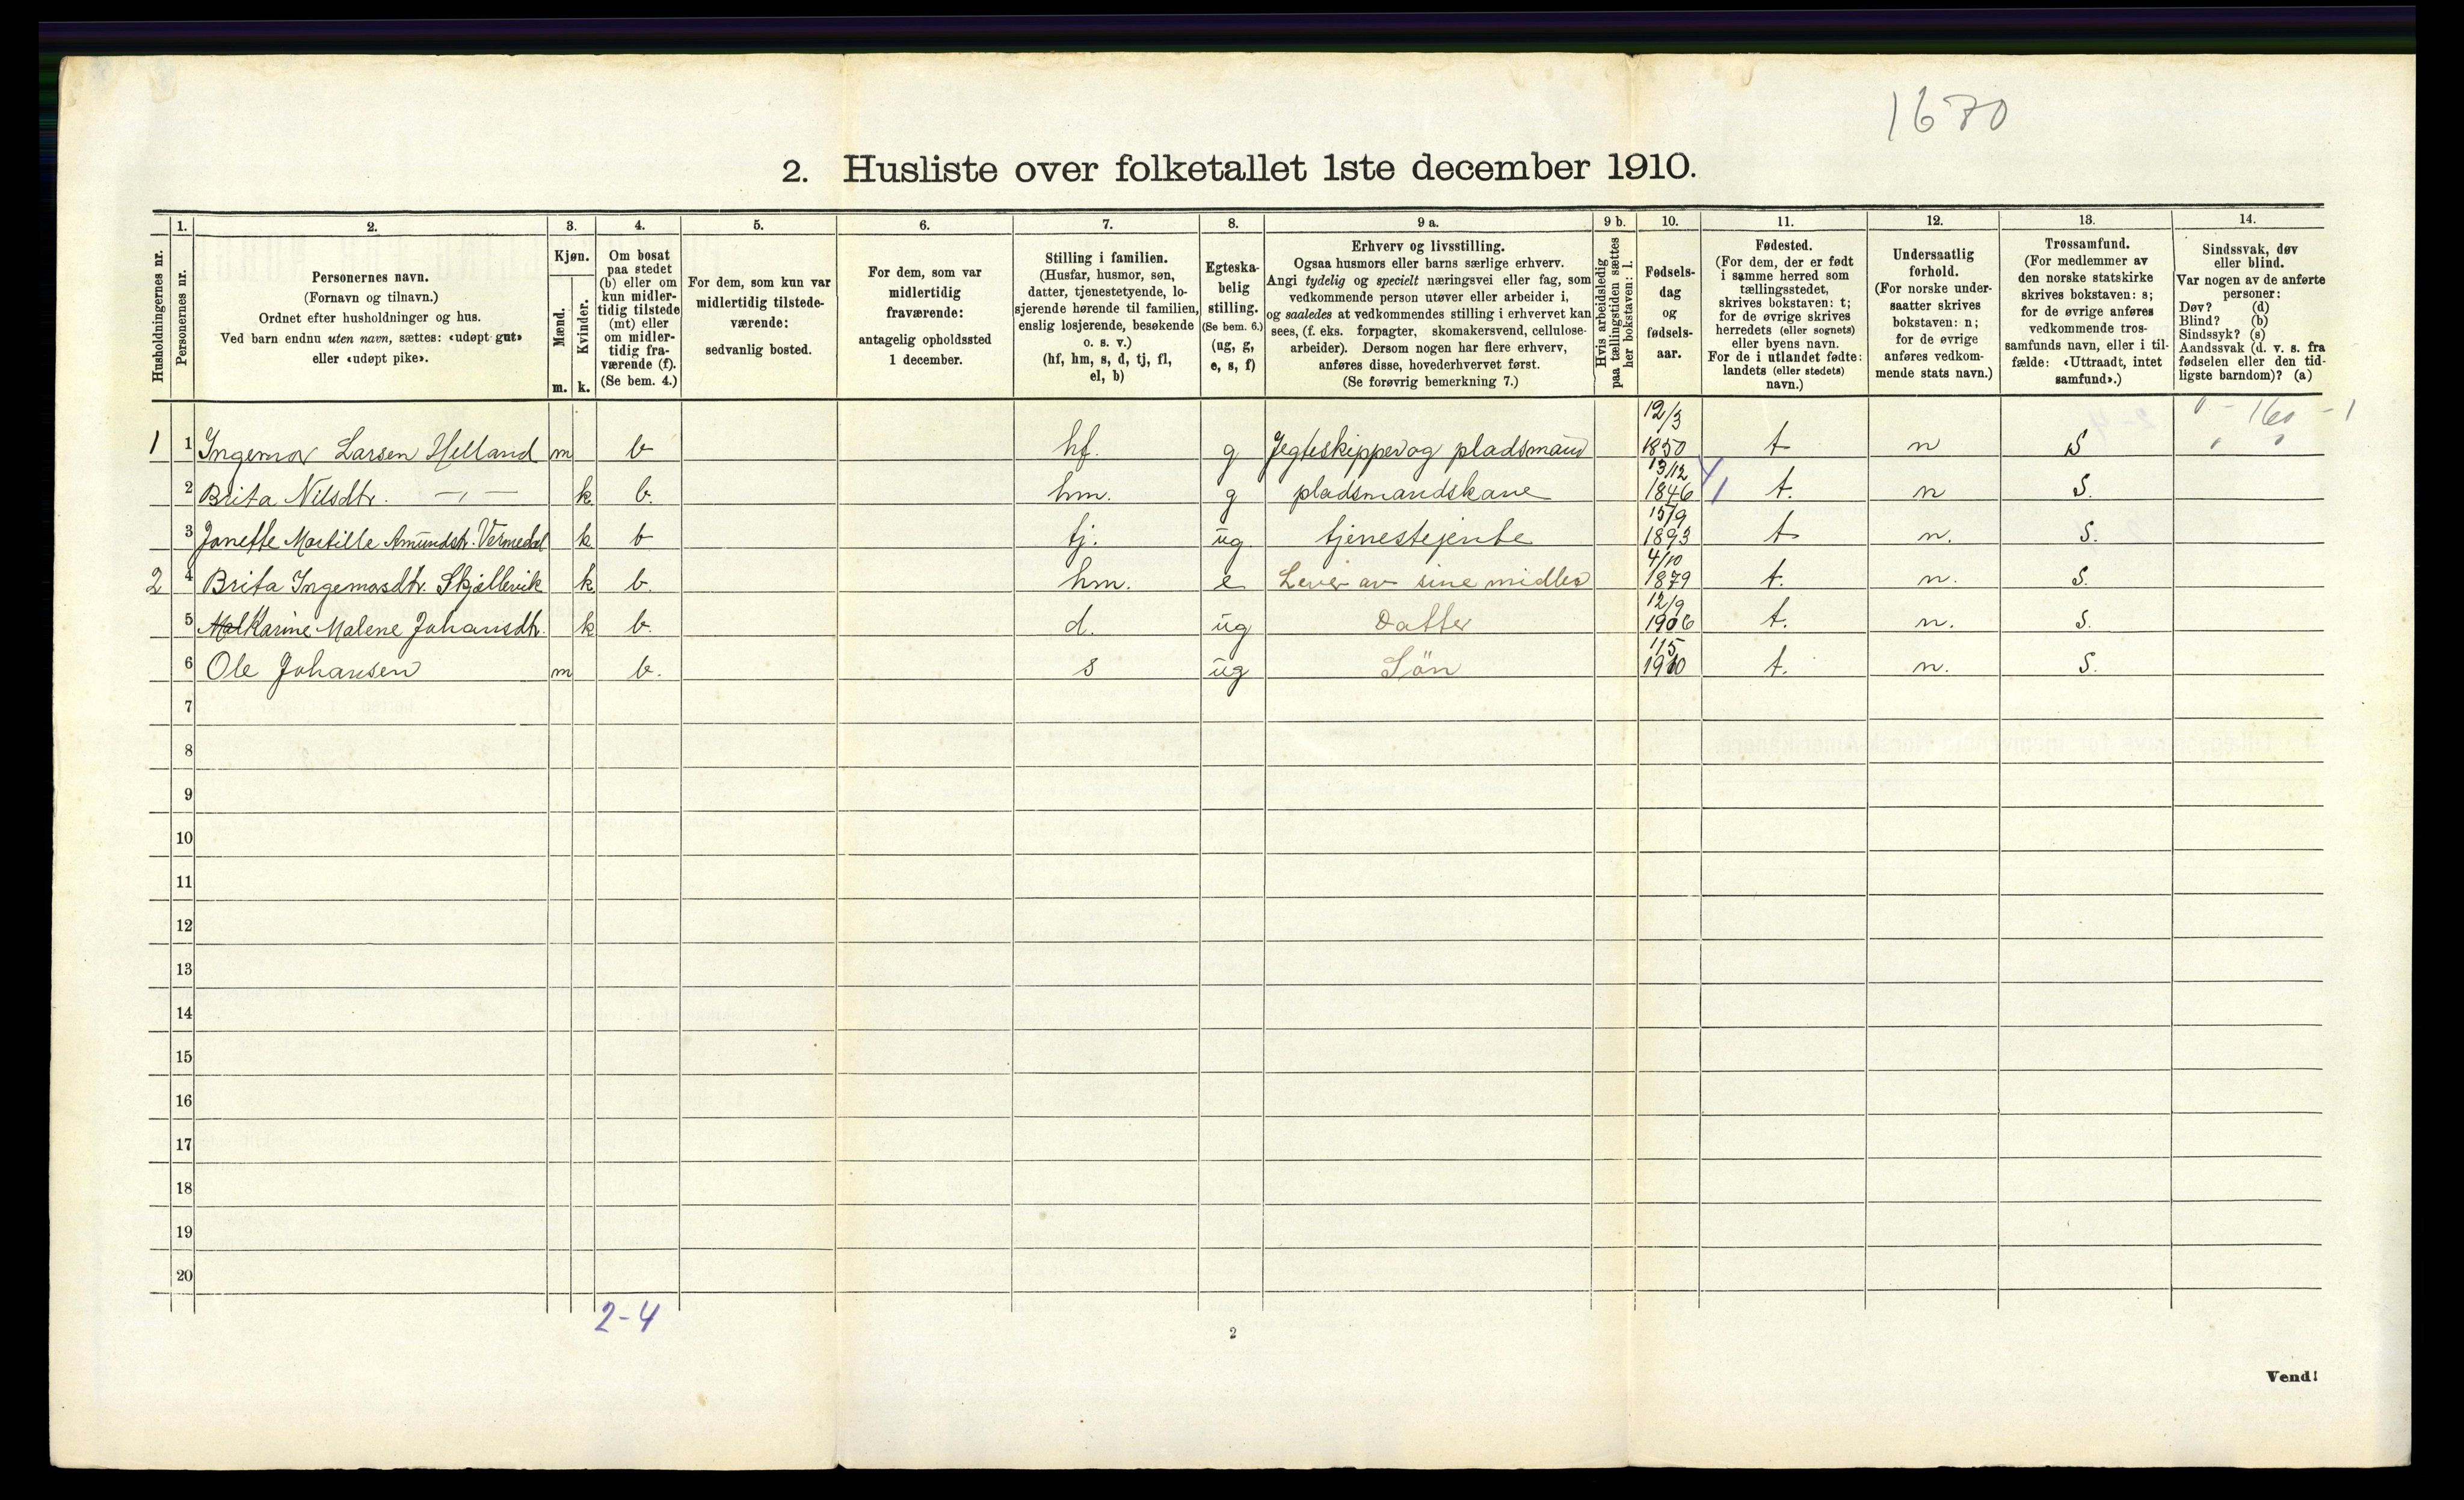 1670
2. Husliste over folketallet 1ste december 1910.
1. 2. 3. 4. 5. 6. 7. 8. 9 a. 9 b. 10. 11. 12. 13. 14.
Husholdningernes nr.
Personernes nr.
Personernes navn.
(Fornavn og tilnavn.)
Ordnet efter husholdninger og hus.
Ved barn endnu uten navn, sættes: «udøpt gut»
eller «udøpt pike».
Kjøn.
Mænd.
Kvinder.
m. k.
Om bosat
paa stedet
(b) eller om
kun midler-
tidig tilstede
(mt) eller
om midler-
tidig fra-
værende (f).
(Se bem. 4.)
For dem, som kun var
midlertidig tilstede-
værende:
sedvanlig bosted.
For dem, som var
midlertidig
fraværende:
antagelig opholdssted
1 december.
Stilling i familien.
(Husfar, husmor, søn,
datter, tjenestetyende, lo-
sjerende hørende til familien,
enslig losjerende, besøkende
o. s. v.)
(hf, hm, s, d, tj, fl,
el, b)
Egteska-
belig
stilling.
(Se bem. 6.)
(ug, g,
e, s, f)
Erhverv og livsstilling.
Ogsaa husmors eller barns særlige erhverv.
Angi tydelig og specielt næringsvei eller fag, som
vedkommende person utøver eller arbeider i,
og saaledes at vedkommendes stilling i erhvervet kan
sees, (f. eks. forpagter, skomakersvend, cellulose-
arbeider). Dersom nogen har flere erhverv,
anføres disse, hovederhvervet først.
(Se forøvrig bemerkning 7.)
Hvis arbeidsledig
paa tællingstiden sættes
her bokstaven: l.
Fødsels-
dag
og
fødsels-
aar.
Fødested.
(For dem, der er født
i samme herred som
tællingsstedet,
skrives bokstaven: t;
for de øvrige skrives
herredets (eller sognets)
eller byens navn.
For de i utlandet fødte:
landets (eller stedets)
navn.)
Undersaatlig
forhold.
(For norske under-
saatter skrives
bokstaven: n;
for de øvrige
anføres vedkom-
mende stats navn.)
Trossamfund.
(For medlemmer av
den norske statskirke
skrives bokstaven: s;
for de øvrige anføres
vedkommende tros-
samfunds navn, eller i til-
fælde: «Uttraadt, intet
samfund».)
Sindssvak, døv
eller blind.
Var nogen av de anførte
personer:
Døv? (d)
Blind? (b)
Sindssyk? (s)
Aandssvak (d. v. s. fra
fødselen eller den tid-
ligste barndom)? (a)
1 1 Ingemar Larsen Helland m b hf. g Jegteskipper og pladsmand 12/3 1850 t n S
2 Brita Nilsdtr. —„— k b. hm. g pladsmandskane 13/12 1846 t. n S.
3 Janette Martille Amundst. Vermedal k b tj. ug tjenestejente 15/9 1893 t n. S.
2 4 Brita Ingemarsdtr. Skjellevik k b. hm. e Lever av sine midler 4/10 1879 t. n. S.
5 Mal Karine Malene Johansdtr. k b. d. ug Datter 12/9 1906 t. n. S.
6 Ole Johansen m b. s ug Sön 11/5 1910 t. n. S.
7
8
9
10
11
12
13
14
15
16
17
18
19
20
2-4
2
Vend!